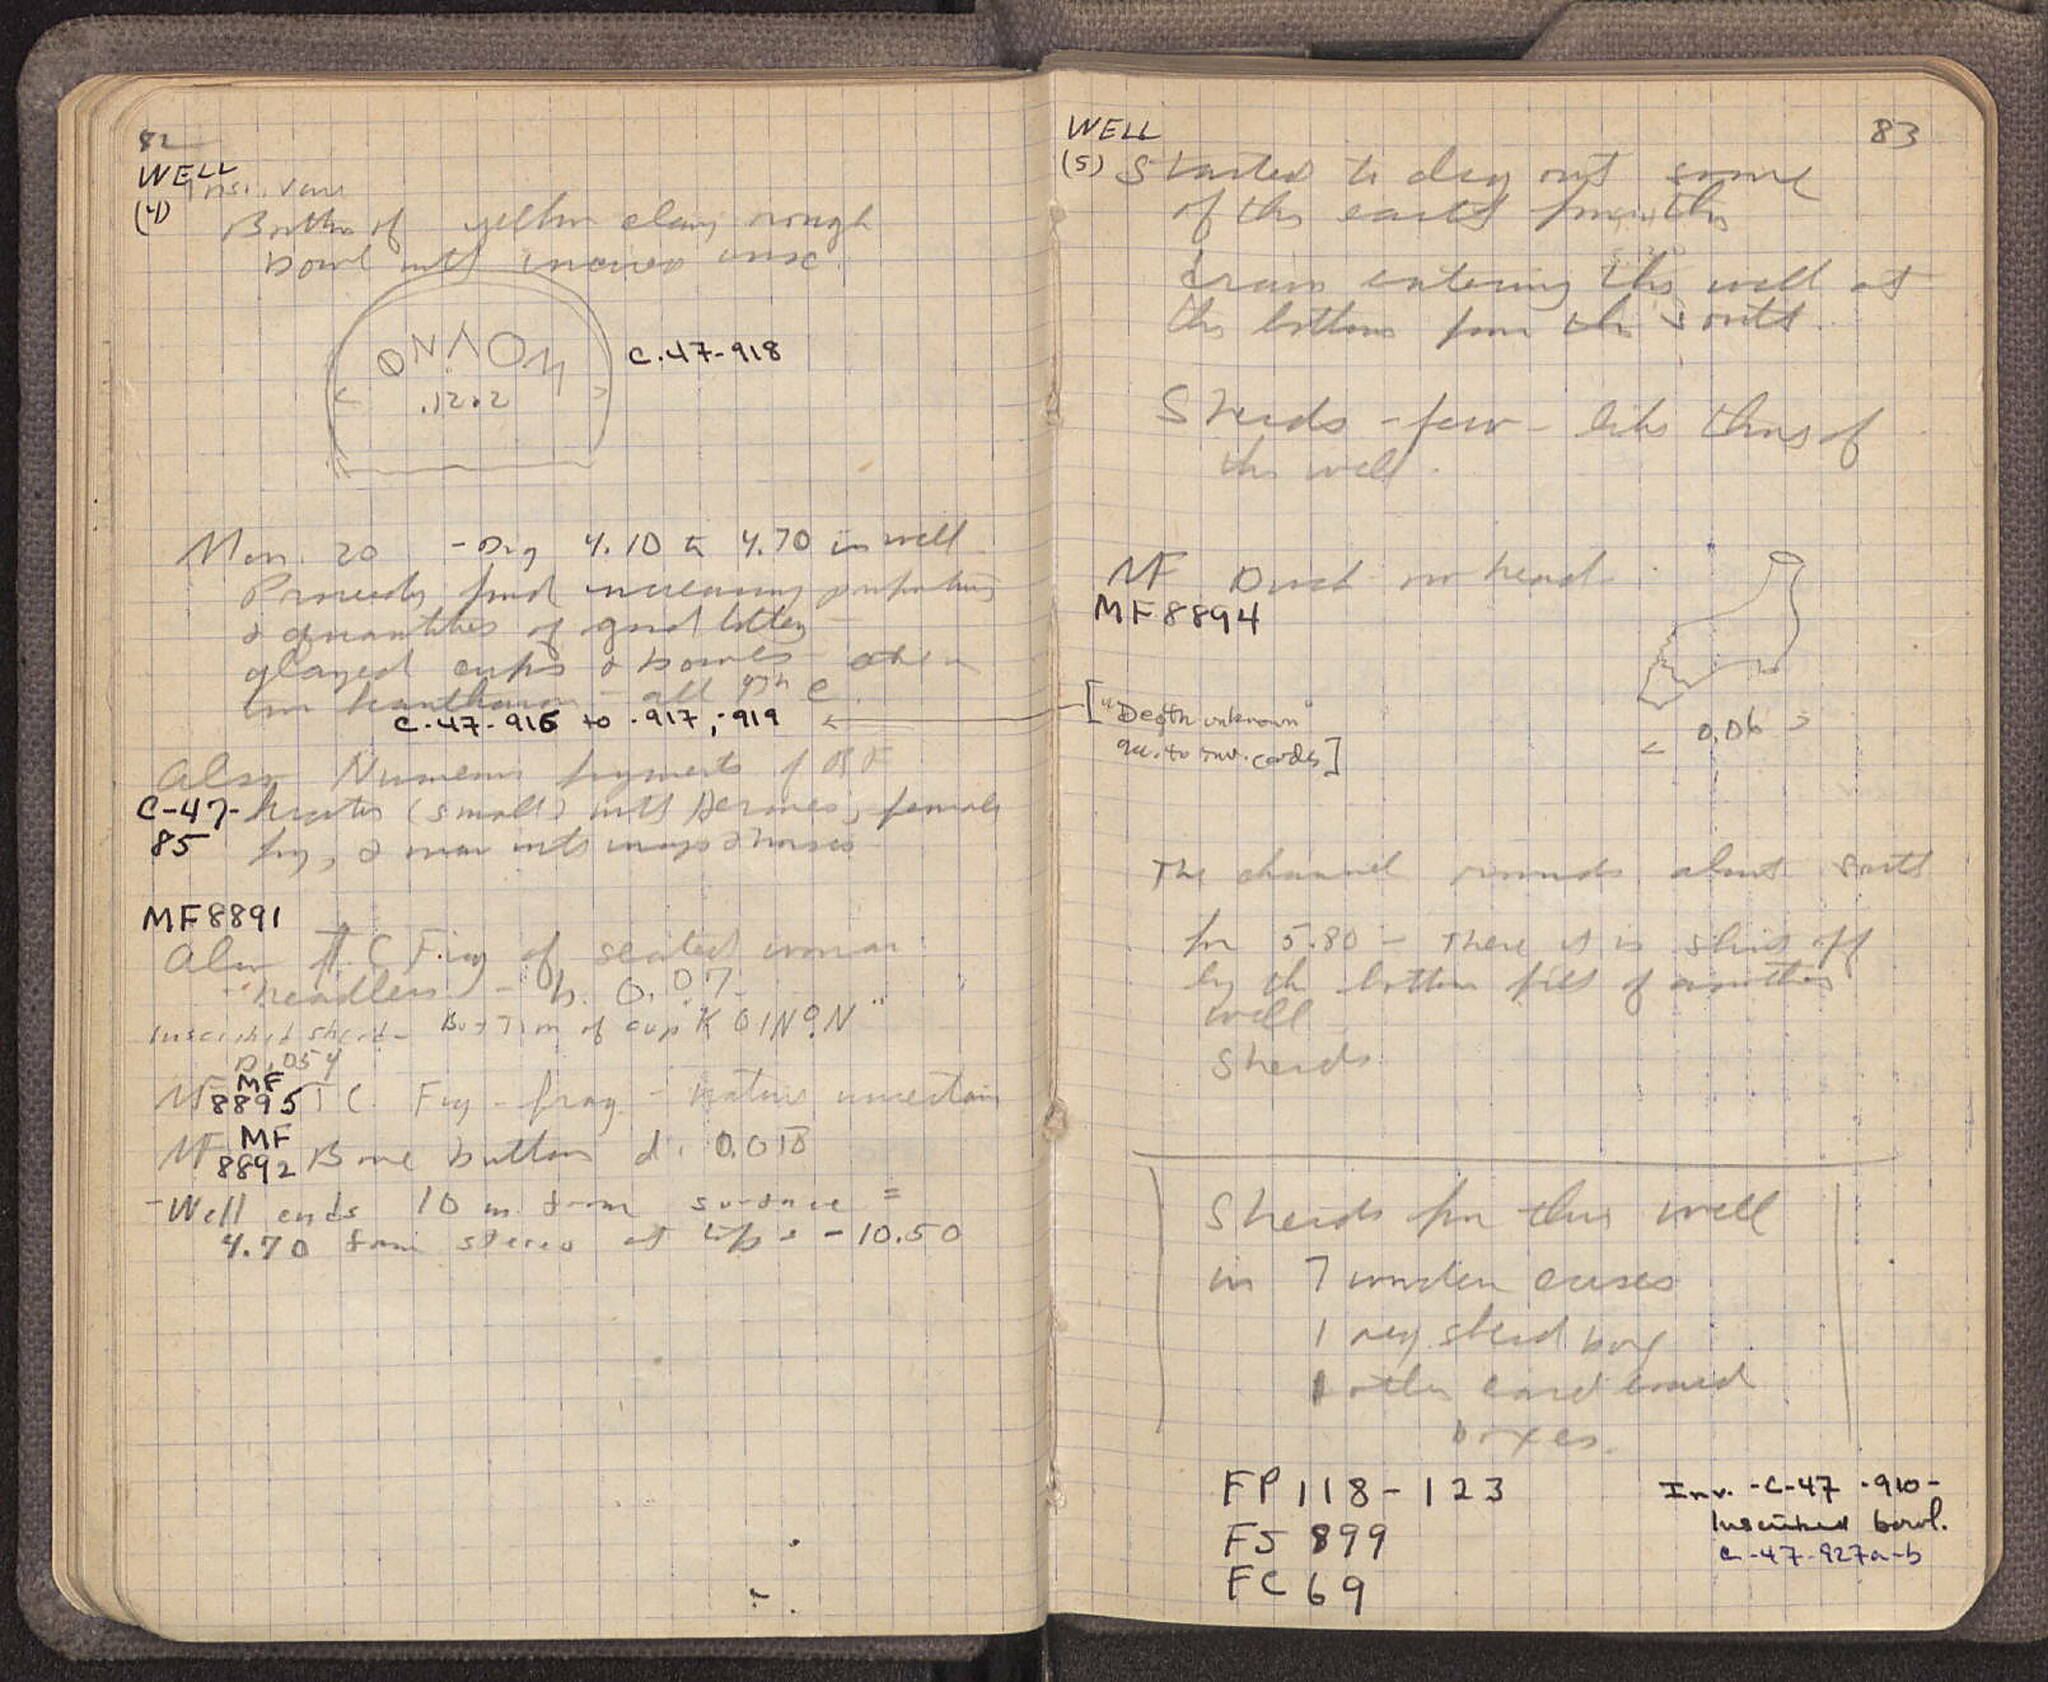 82
WELL
(4)
Insc. vase
Bottom of yellow clay rough
bowl with incised insc.
C-47-918
.1202
Mon. 20 - Dig 4.10 to 4.70 in well
find increasing
& quantities of good
glazed cups & bowls
kantharos - all 4th C.
C-47-916 to -917, -919
Also Numerous fragments of RF
C-47-85
krater (small) with Hermes, female
fig, & man with horses
MF8891
Also T.C Fig of seated woman
headless - h. 0.07
Inscribed sherd - Bottom of cup "KOINON"
D. .054
MF
MF 8895 T C. Fig - frag - nature uncertain
MF
MF 8892 Bone button d. 0.018
- Well ends 10 m from surface =
4.70 from stereo at top = -10.50
83
WELL
(5) Started to dig out some
of the earth from the
drain entering the well at
the bottom from the south.
Sherds - few - like those of
the well.
MF Duck no head
MF 8894
0.06
["Depth unknown"
acc. to inv. cards]
The channel runs about south
for 5.80 - There it is shut off
by the bottom fill of another
well
Sherds.
Sherds for this well
in 7 wooden cases
1 reg. sherd box
1 other cardboard
boxes.
FP 118-123
FS 899
FC 69
Inv. - C-47 -910-
Inscribed bowl.
C-47-927a-b